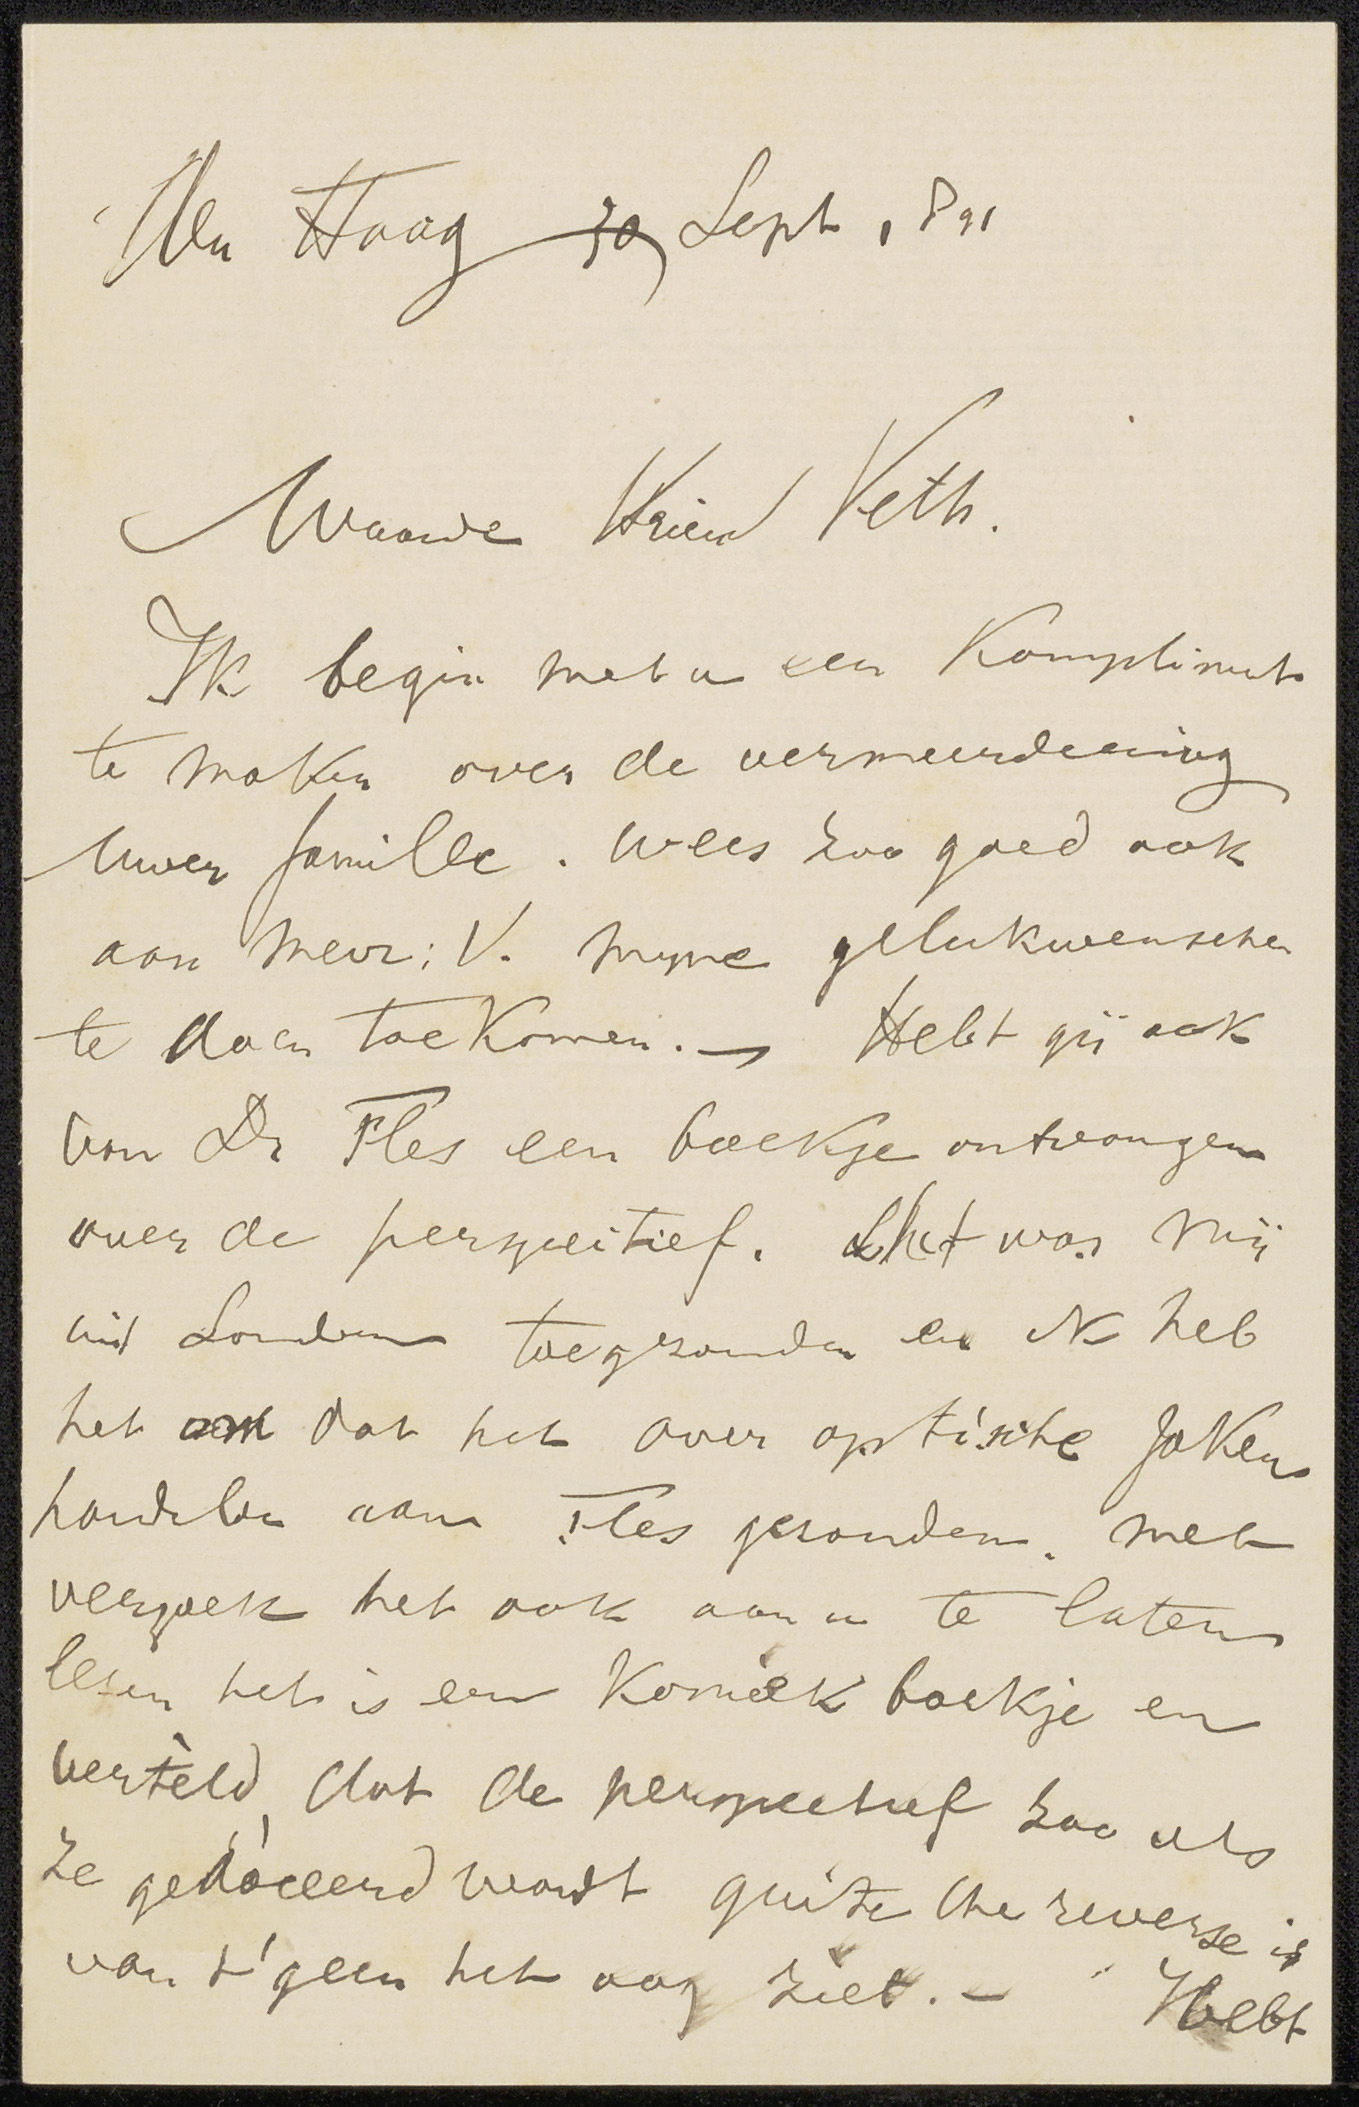 Den Haag 30 Sept 1891
Waarde Vriend Veth.
Ik begin met u een Kompliment
te maken over de vermeerdering
Uwer famille. wees zoo goed ook
aan mevr: V. myne gelukwenschen
te doen toekomen. — Hebt gij ook
van Dr Fles een boekje ontvangen
over de perspectief. Het was mij
uit Londen toegezonden en ik heb
het om dat het over optische zaken
handelde aan Fles gezonden. met
verzoek het ook aan u te laten
lezen het is een Komiek boekje en
verteld, dat de perspectief zoo als
ze gedoceerd wordt quite the reverse is
van t'geen het oog ziet. — Hebt